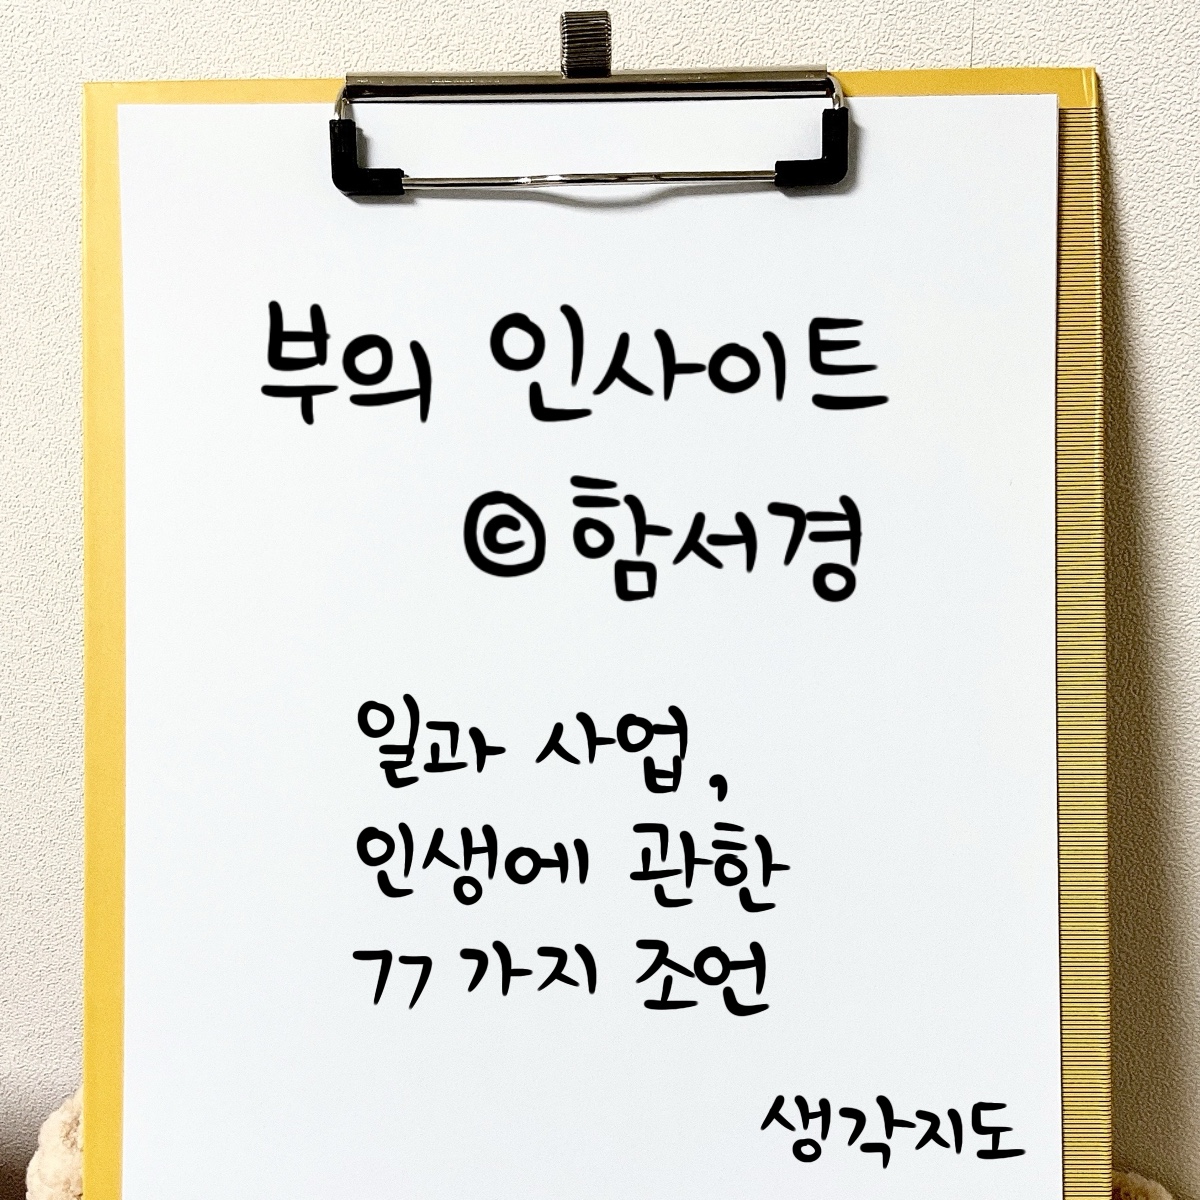 부의 인사이트
© 함서경
일과 사업,
인생에 관한
77가지 조언
생각지도